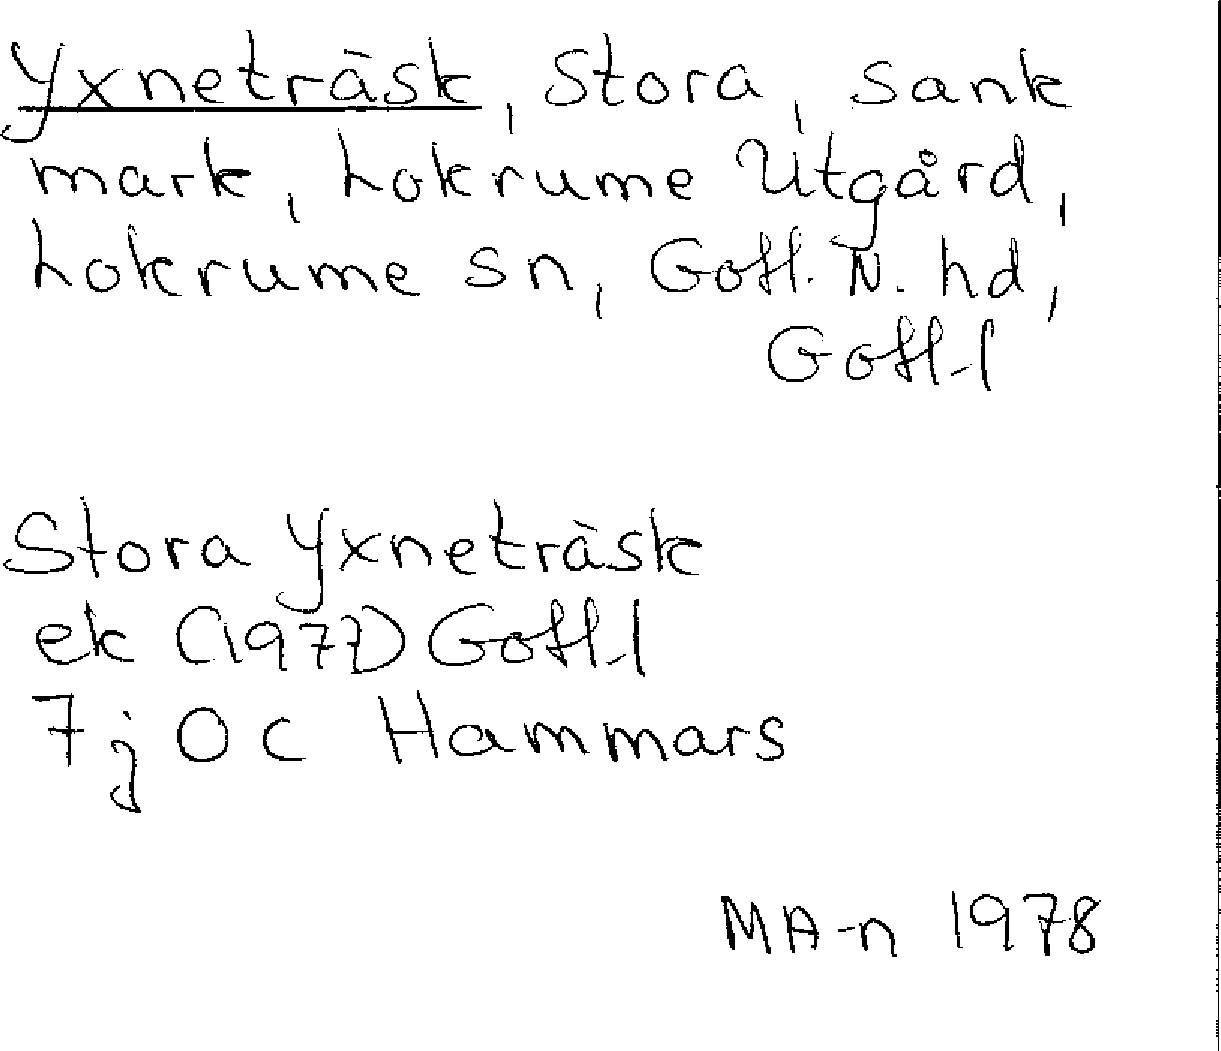 Yxneträsk, Stora, sank
mark, Lokrume Utgård,
Lokrume sn, Gotl. N. hd,
Gotl-l
Stora Yxneträsk
ek (1977) Gotl-l
7j 0c Hammars
MA-n 1978